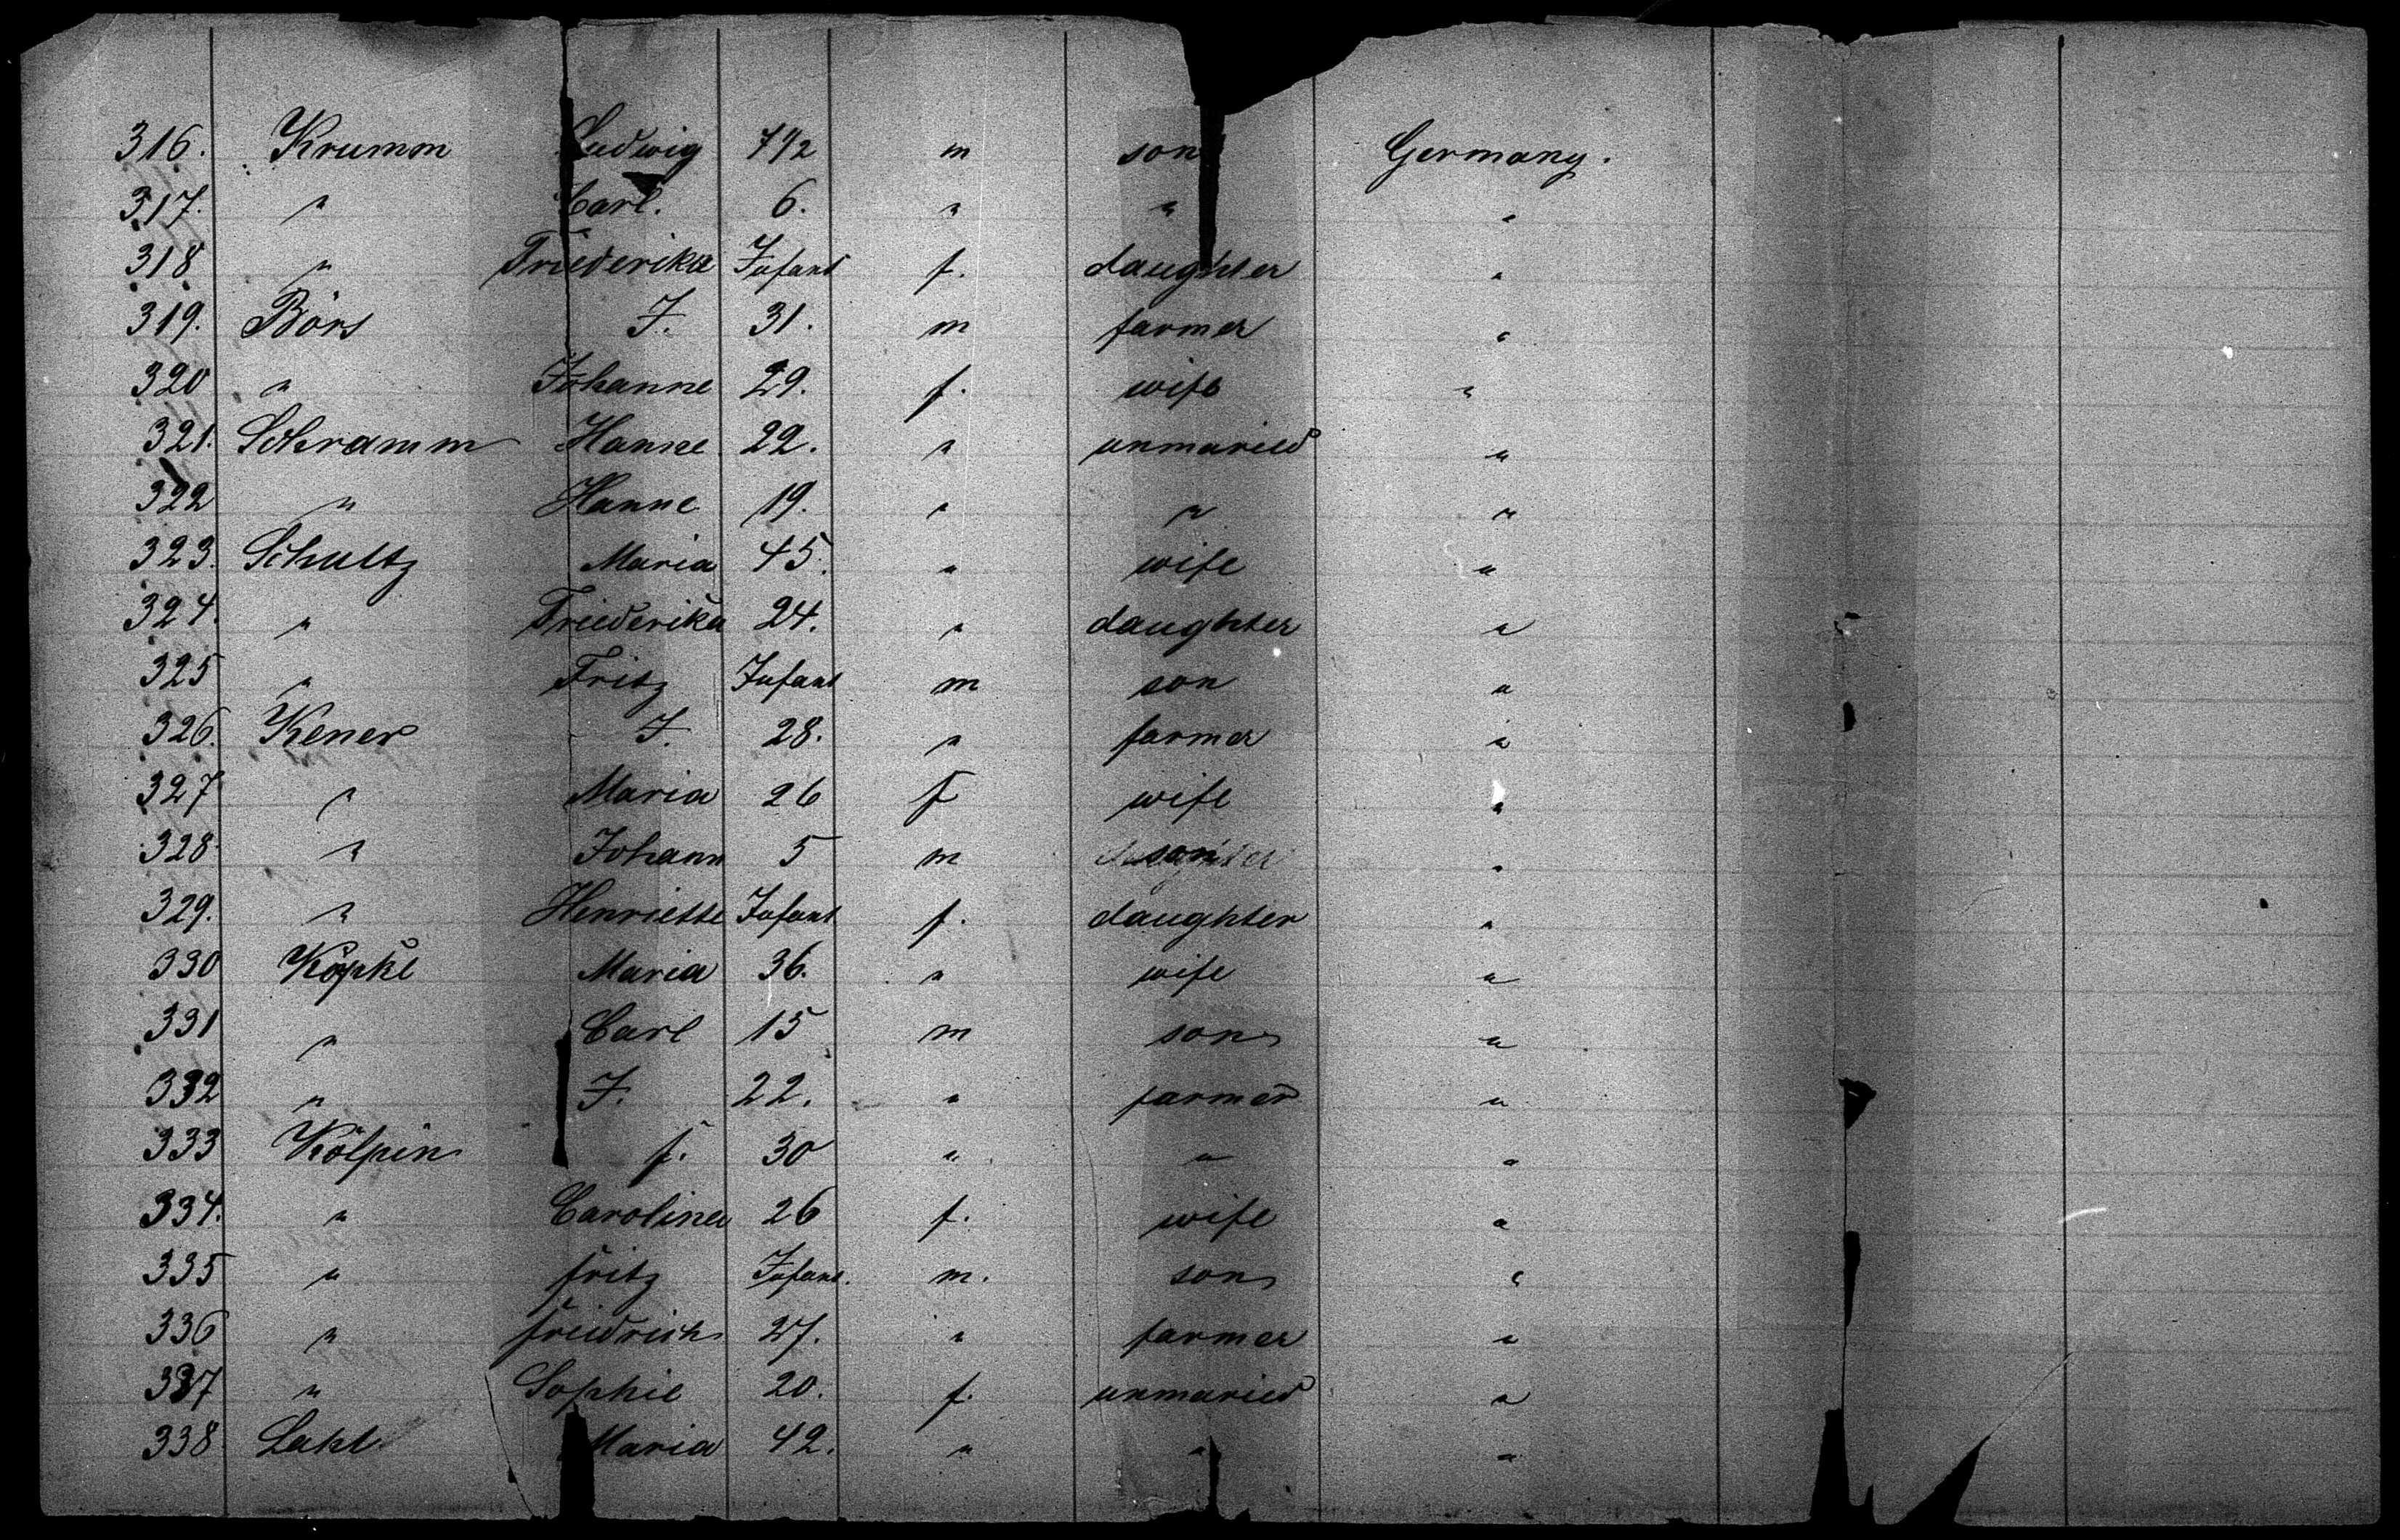 316. Krumm Ludwig 7 1/2 m son Germany.
317. " Carl. 6. " " "
318 " Friederika Infant f. daughter "
319. Börs J. 31. m farmer "
320 " Johanne 29. f. wife "
321. Schramm Hanne 22. " unmaried "
322 " Hanne 19. " " "
323. Schultz Maria 45. " wife "
324. " Friederika 24. " daughter "
325 " Fritz Infant m son "
326. Kener J. 28. " farmer "
327 " Maria 26 f wife "
328 " Johann 5 m son "
329. " Henriette Infant f. daughter "
330 Köpke Maria 36. " wife "
331 " Carl 15 m son "
332 " J. 22. " farmer "
333 Kölpin f. 30 " " "
334. " Carolina 26 f. wife "
335 " fritz Infant. m. son "
336 " friedrich 27. " farmer "
337 " Sophie 20. f. unmaried "
338 Maria 42. " " "